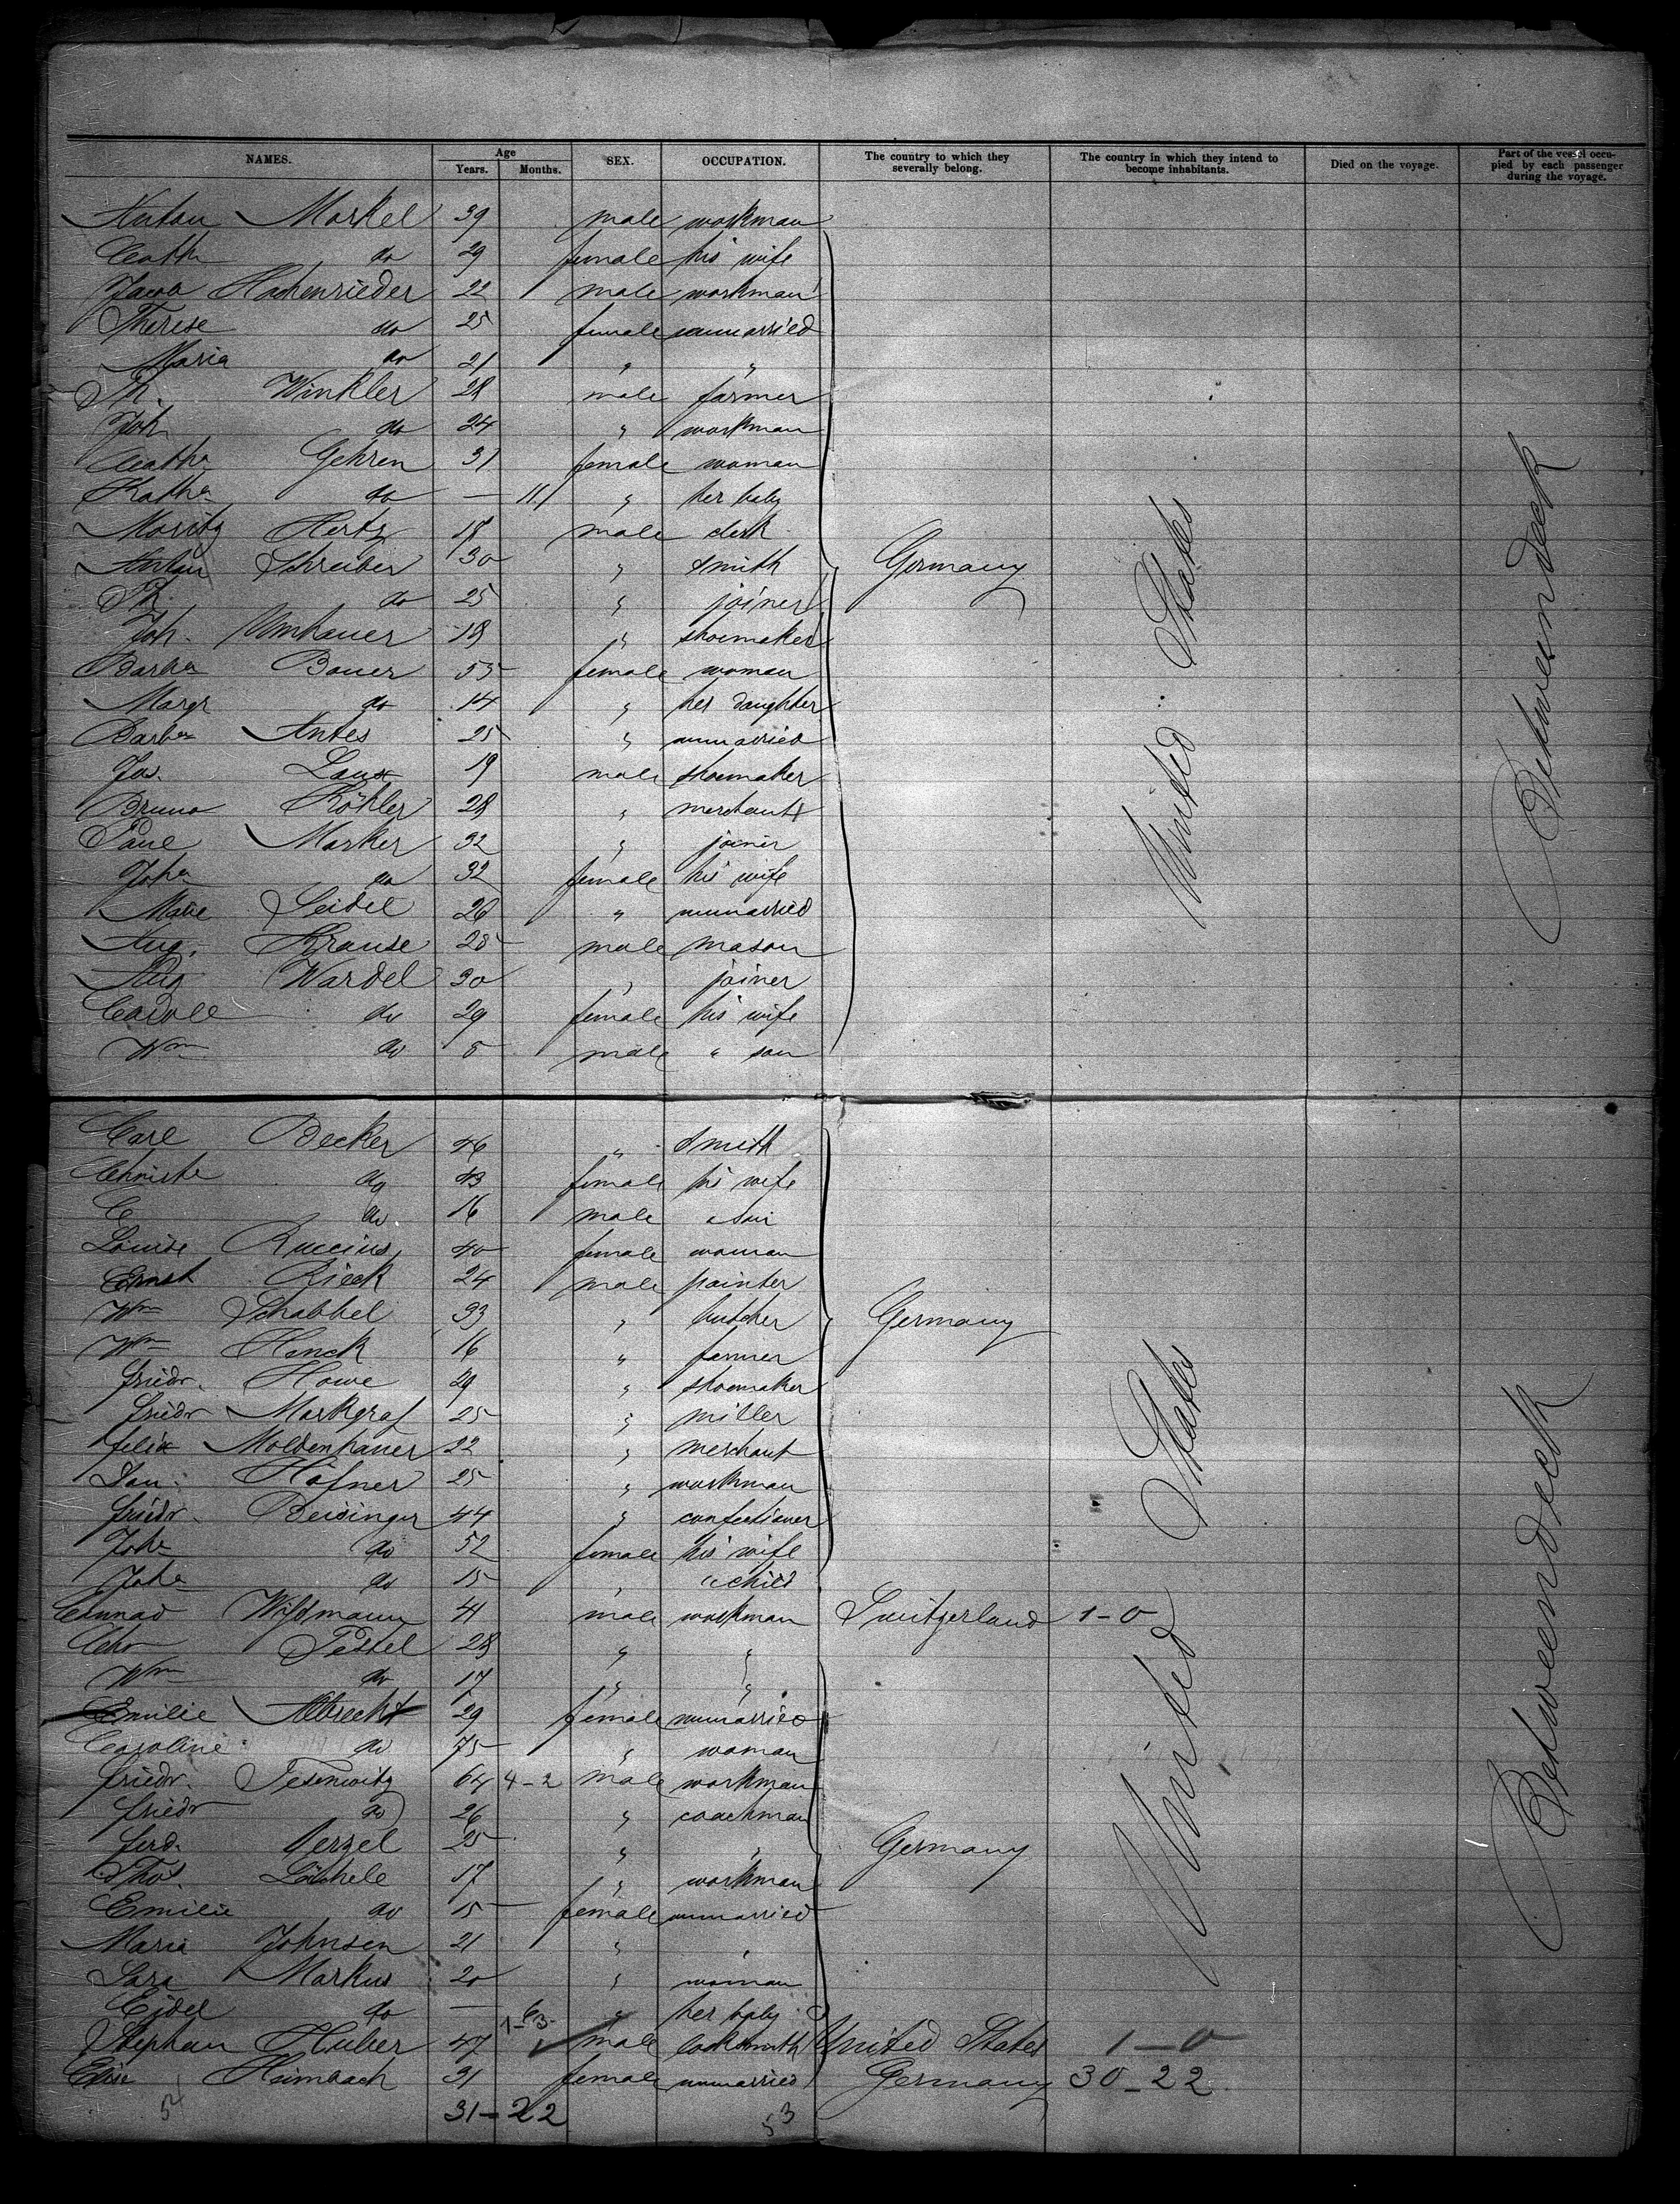 NAMES. Age Years. Months. SEX. OCCUPATION. The country to which they severally belong. The country in which they intend to become inhabitants. Died on the voyage. Part of the vessel occupied by each passenger during the voyage.
Anton Markel 39 male workman
Cath do 29 female his wife
Jacob Hachenrieder 22 male workman
Therese do 25 female unmarried
Maria do 21 " "
Th. Winkler 28 male farmer
Joh do 24 " workman
Catha Gehren 31 female woman
Katha do — 11 " her baby
Moritz Hertz 18 male clerk
Anton Schreiber 30 " smith Germany
Th. do 25 " joiner
Joh. Umhauer 18 " shoemaker
Barba Bauer 55 female woman
Margr do 14 " her daughter
Barba Antes 25 " unmarried
Jos. Laux 19 male shoemaker
Bruno Köhler 28 " merchant
Paul Marker 32 " joiner
Joha do 32 female his wife
Marie Seidel 26 " unmarried
Aug. Krause 25 male mason
Aug Wardel 30 " joiner
do 29 female his wife
Wm do 8 male " son
United States
Betweendeck
Carl Becker 46 " smith
Christe do 43 female his wife
C do 16 male " son
Louise Ruccius 40 female woman
Ernst Rieck 24 male painter
Wm Schabbel 33 " butcher Germany
Wm Henck 16 " farmer
Friedr. Howe 29 " shoemaker
Friedr Markgraf 25 " miller
Felix Moldenhauer 22 " merchant
Höfner 25 " workman
Friedr. Beisinger 44 " confectioner
Joha do 52 female his wife
Joha do 15 " " child
Conrad Wissmann 41 male workman Switzerland 1-0
Chr Pestel 28 " "
Wm do 17 " "
Emilie Albrecht 29 female unmarried
Caroline do 75 " woman
Friedr. Tesenwitz 64 4-2 male workman
Friedr do 26 " coachman
Ferd. 25 " " Germany
Thos. 17 " workman
Emilie do 15 female unmarried
Maria Johnsen 21 " "
Sara Markus 20 " woman
Eidel do — 6 " her baby
1-3
Stephan Huber 47 male locksmith United States 1-0
Elise Heimbach 31 female unmarried Germany 30-22
54 31-22 53
United States
Betweendeck